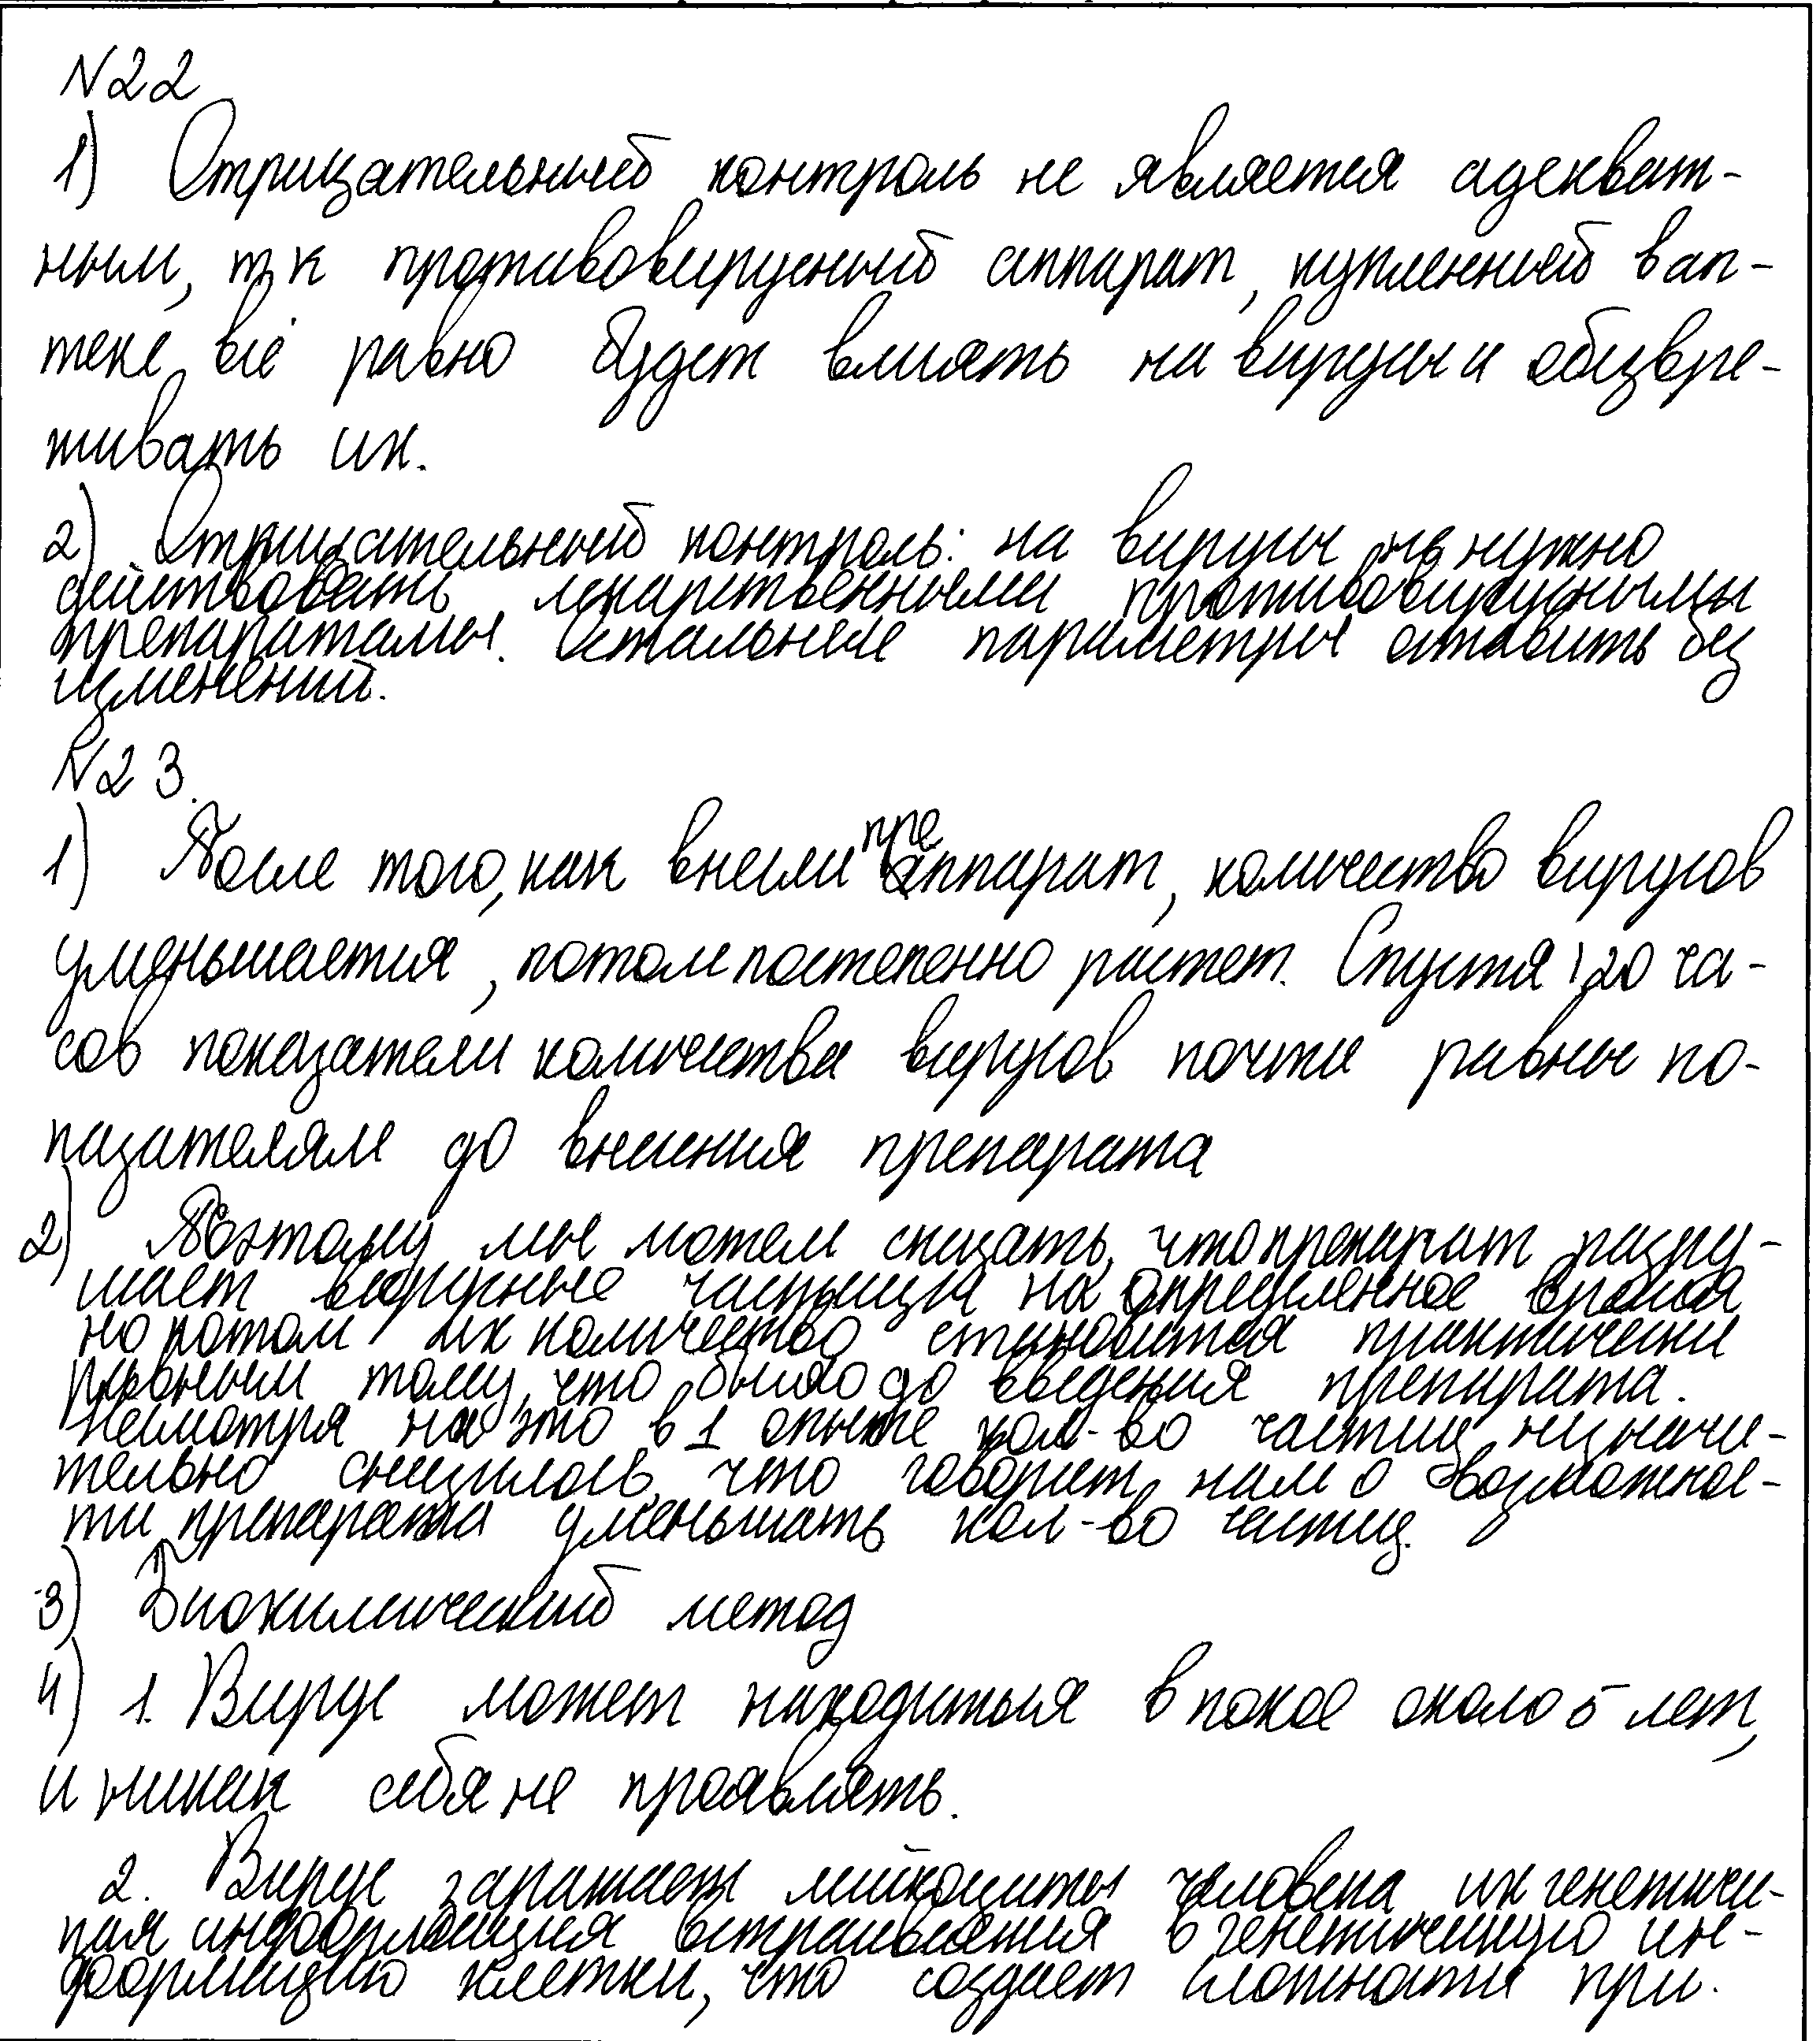 N22
1) Отрицательный контроль не является адекват-
ным, т.к противовирусный аппарат, купленный в ап-
теке всё равно будет влиять на вирусы и обезвре-
живать их.
2) Отрицательный контроль: на вирусы не нужно
действовать лекарственными противовирусными
препаратами. Остальные параметры оставить без
изменений.
N23.
1) После того, как внесли препарат, количество вирусов
уменьшается, потом постепенно растет. Спустя 120 ча-
сов показатели количества вирусов почти равны по-
казателям до внесения препарата
2) Поэтому мы можем сказать, что препарат разру-
шает вирусные частицы на определенное время
но потом их количество становится практически
равным тому, что было до введения препарата.
Несмотря на это в 1 опыте кол-во частиц незначи-
тельно снизилось, что говорит нам о возможнос-
ти препарата уменьшать кол-во частиц.
3) Биохимический метод
4) 1. Вирус может находиться в покое около 5 лет,
и никак себя не проявлять.
2. Вирус заражает лейкоциты человека их генетичес-
кая информация встраивается в генетическую ин-
формацию клетки, что создает сложности при.